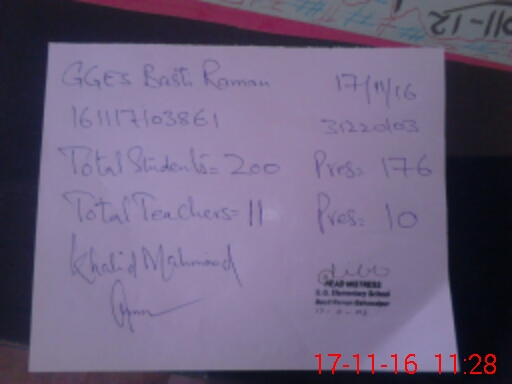 GGES Basti Raman 17/11/16
161117103861 31220103
Total Students = 200 Pres = 176
Total Teachers = 11 Pres = 10
Khalid Mahmood
HEAD MISTRESS
Elementary School
17-11-16 11:28